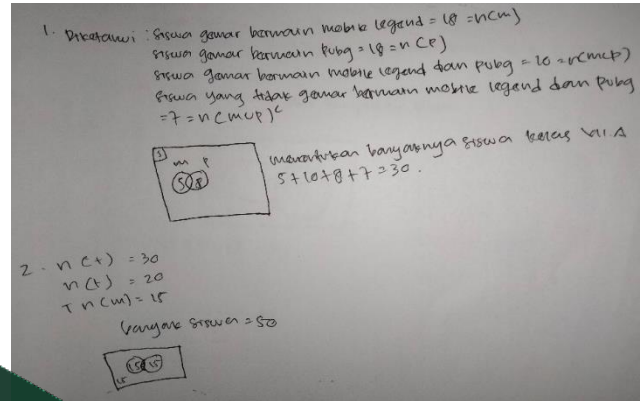 1. Diketahui : siswa gemar bermain mobile legend = 18 = n(m)
siswa gemar bermain pubg = 18 = n(p)
siswa gemar bermain mobile legend dan pubg = 10 = n(mcp)
siswa yang tidak gemar bermain mobile legend dan pubg
= 7 = n(mup)ᶜ
S
m p
5 8
menentukan banyaknya siswa kelas VII.A
5+10+8+7=30.
2. n(t) = 30
n(t) = 20
n(m) = 15
banyak siswa = 50
15 15
15